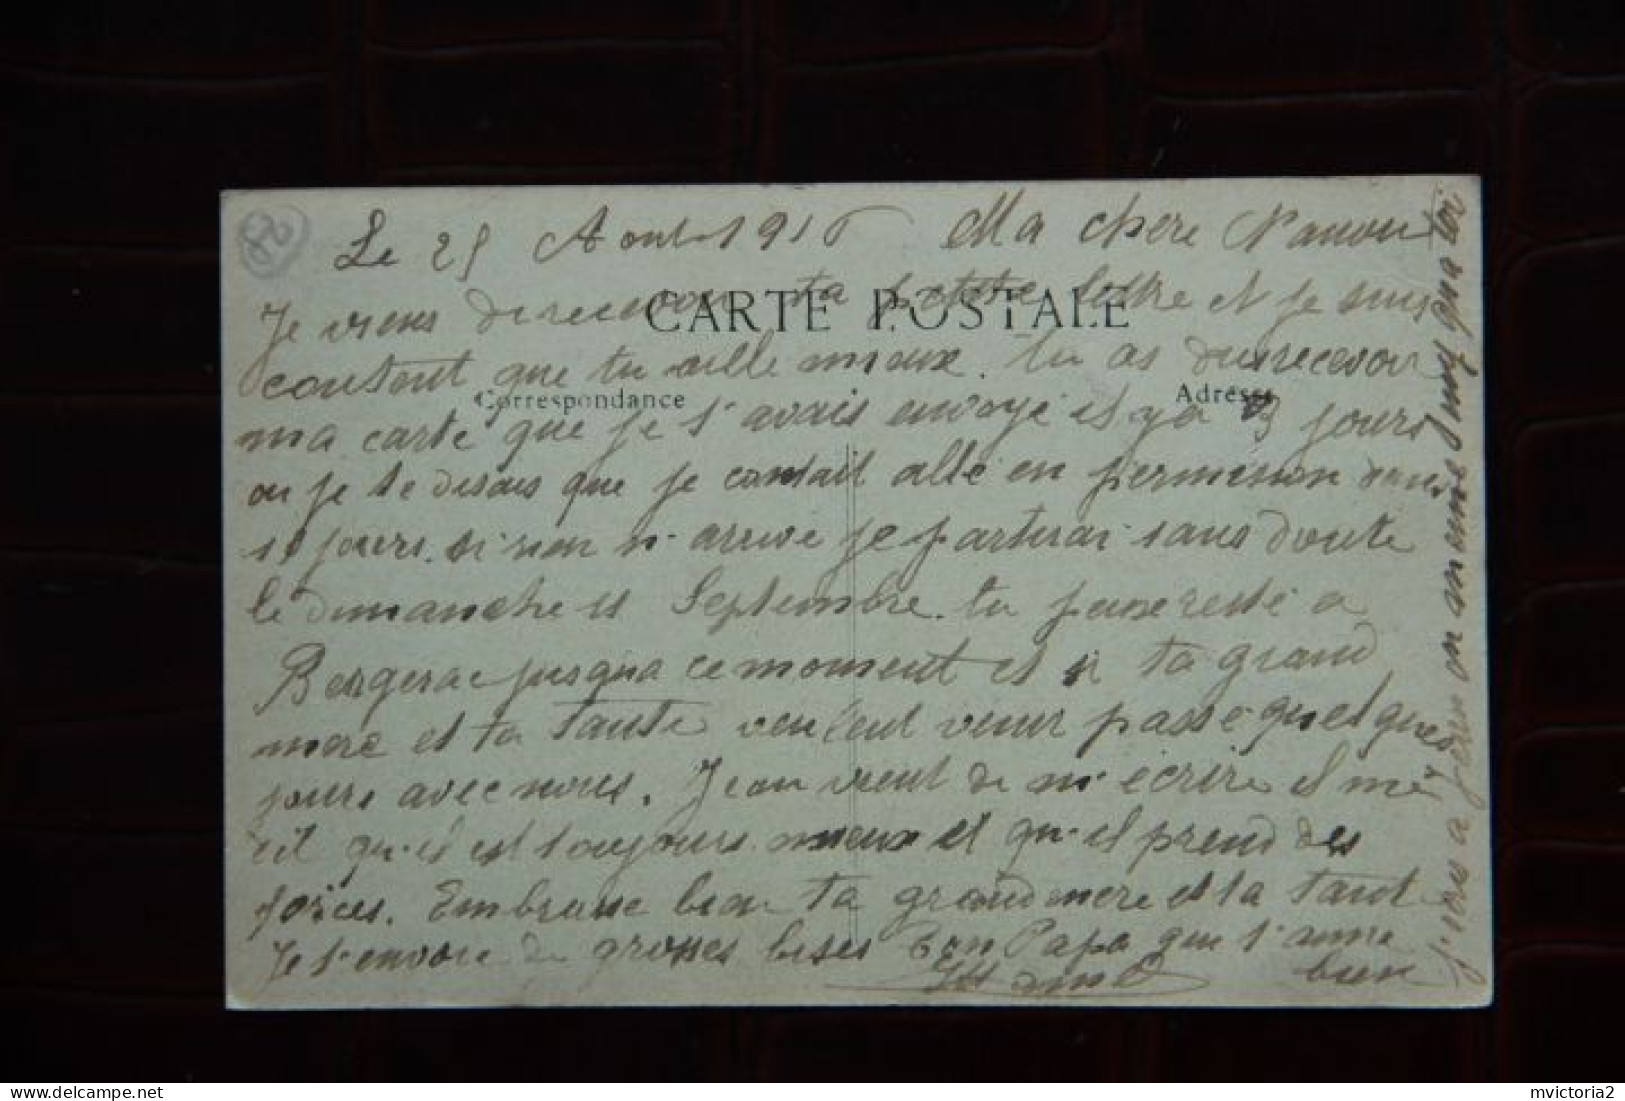 82
Le 25 Aout 1916 Ma chere Nanon
CARTE POSTALE
Je viens de recevoir ta petite lettre et je suis
content que tu aille mieux. tu as du recevoir
Correspondance
Adresse
ma carte que je t'avais envoyé il y a 3 jours
ou je te disais que je contait allé en permission dans
jours. si rien n'arrive je partirai sans doute
le dimanche Septembre. tu peux resté a
Bergerac jusqua ce moment et si ta grand
mere et ta tante veulent venir passé quelques
jours avec nous. Jean vient de m'écrire il me
dit qu'il est toujours mieux et qu'il prend des
forces. Embrasse bien ta grand mere et ta tante
Je t'envoie de grosses bises Ton Papa que t'aime
bien
J'irais a en meme qua toi
mvictoria2